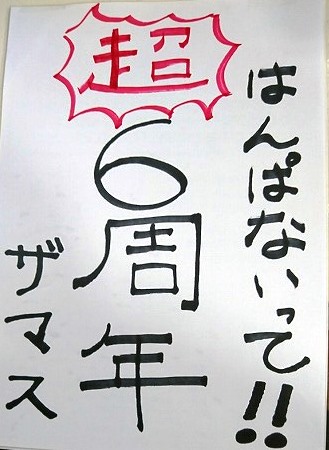 はんぱないって!!
超
6周年
ザマス